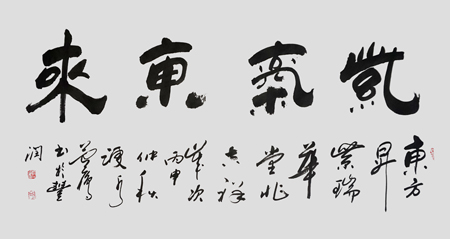 紫氣東來
東方
昇
紫瑞
華
堂兆
吉祥
歲次
丙申
仲秋
書於
润